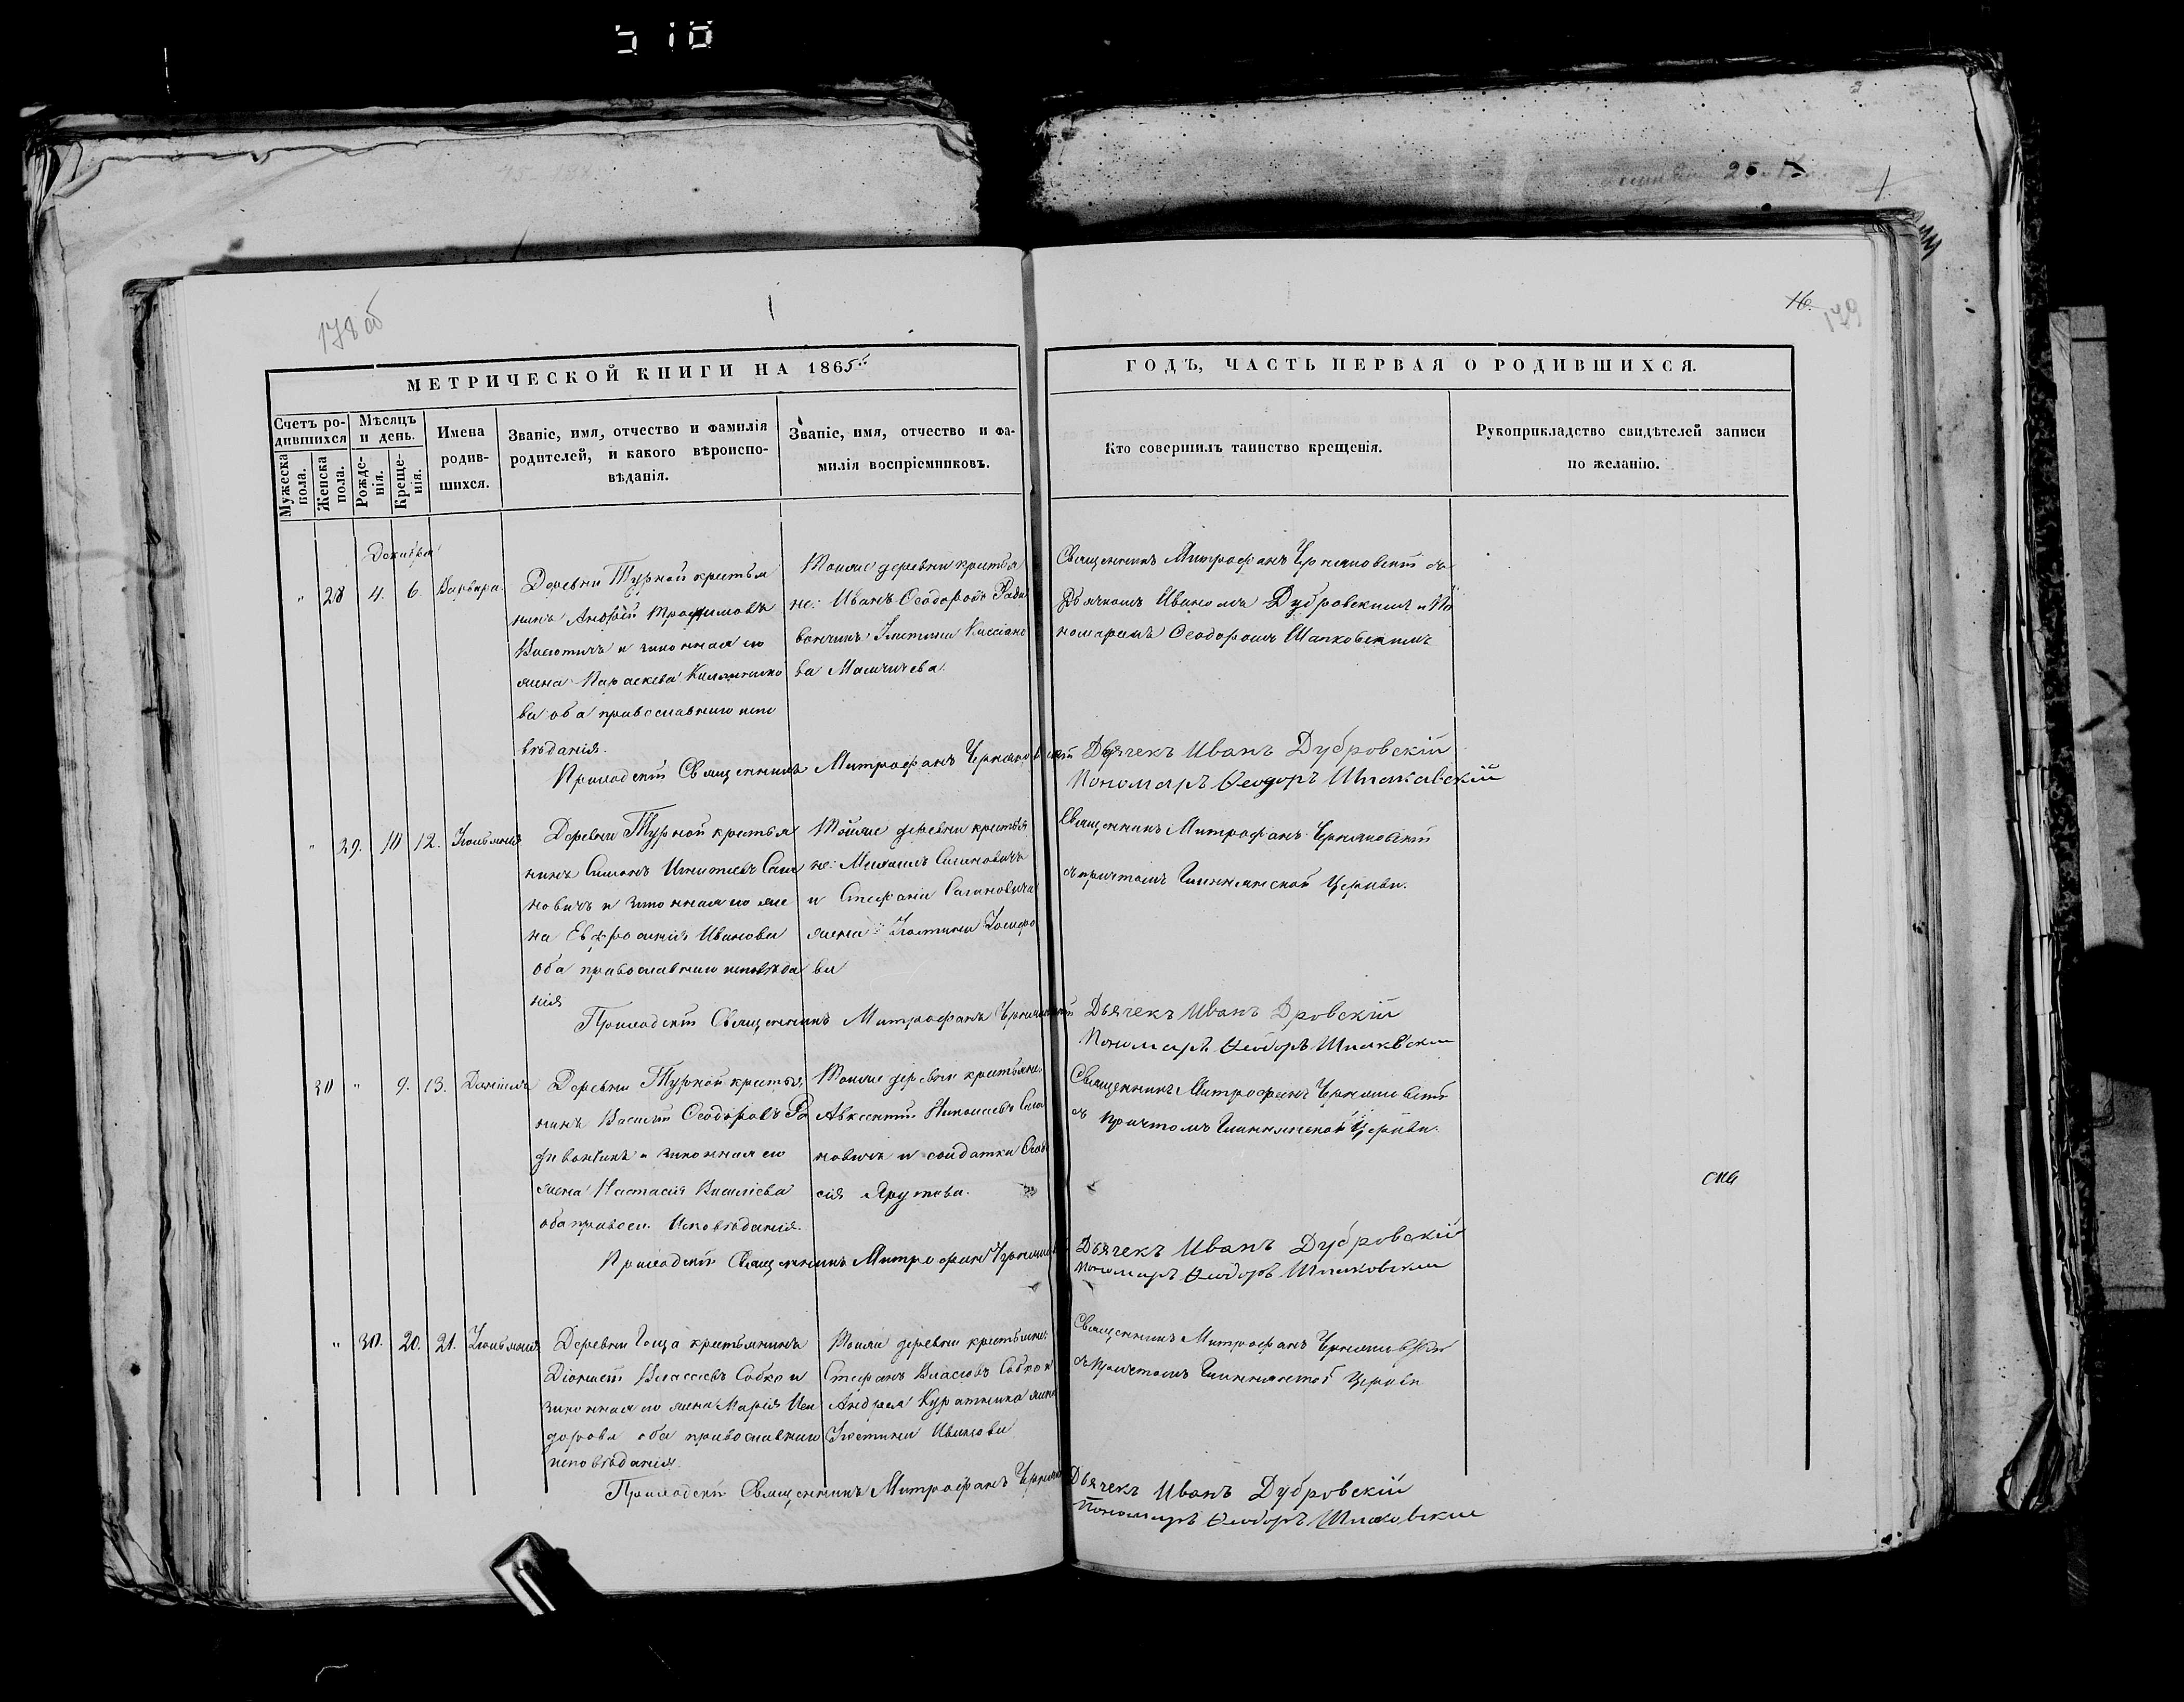 510
178 об
16.
179
МЕТРИЧЕСКОЙ КНИГИ НА 1865й
ГОДЪ, ЧАСТЬ ПЕРВАЯ О РОДИВШИХСЯ.
Счетъ родившихся
Мужеска пола.
Женска пола.
Мѣсяцъ и день.
Рожденія.
Крещенія.
Имена родившихся.
Званіе, имя, отчество и фамилія
родителей, и какого вѣроиспо-
вѣданія.
Званіе, имя, отчество и фа-
милія воспріемниковъ.
Кто совершилъ таинство крещенія.
Рукоприкладство свидѣтелей записи
по желанію.
Декабря
" 28 4. 6. Варвара.
Деревни Турной крестья
нинъ Андрей Трофимовъ
и законная его
жена Параскева
ва оба православнаго испо
вѣданія.
Тойже деревни крестья
не: Иванъ Ѳеодоровъ Ради
вончикъ Кассіано
ва
Священникъ Митрофанъ Черняковскій съ
Дьячкомъ Иваномъ Дубровскимъ и По
номаремъ Ѳеодоромъ Шпаковскимъ
Приходскій Священникъ Митрофанъ Черняковскій
Дьячекъ Иванъ Дубровскій
Пономарь Ѳеодоръ Шпаковскій
" 29. 10 12. Іюліанія
Деревни Турной крестья
нинъ Симонъ Игнатіевъ Сага
новичъ и законная его же
на Евфросинія Иванова
оба православнаго исповѣда
нія
Тойже деревни крестья
не: Михаилъ Сагановичъ
и Стефана Сагановича
жена Іустина Іосифо
ва
Священникъ Митрофанъ Черняковскій
съ причтомъ Церкви.
Приходскій Священникъ Митрофанъ Черняковскій
Дьячекъ Иванъ Дровскій
Пономарь Ѳеодоръ
30 " 9. 13. Даніилъ
Деревни Турной крестья
нинъ Василій Ѳеодоровъ Ра
дивончикъ и законная его
жена Настасія Василіева
оба правосл. Исповѣданія.
Тойже деревни крестьяне
Авксентій Николаевъ Сага
новичъ и солдатка Ѳеодо
сія Ярутова.
Священникъ Митрофанъ Черняковскій
съ Причтомъ Церкви.
Приходскій Священникъ Митрофанъ
Дьячекъ Иванъ Дубровскій
Пономарь Ѳеодоръ Шпаковскій
" 30. 20. 21. Іюліанія
Деревни Гоща крестьянинъ
Діонисій Власіевъ Собко и
законная его жена Марія Иси
дорова оба православнаго
исповѣданія.
Тойже деревни крестьяне:
Стефанъ Власовъ Собко и
Андрея жена
Іустина Иванова
Священникъ Митрофанъ Черняковскій
съ Причтомъ Церкви
Приходскій Священникъ Митрофанъ
Дьячекъ Иванъ Дубровскій
Пономарь Ѳеодоръ Шпаковскій